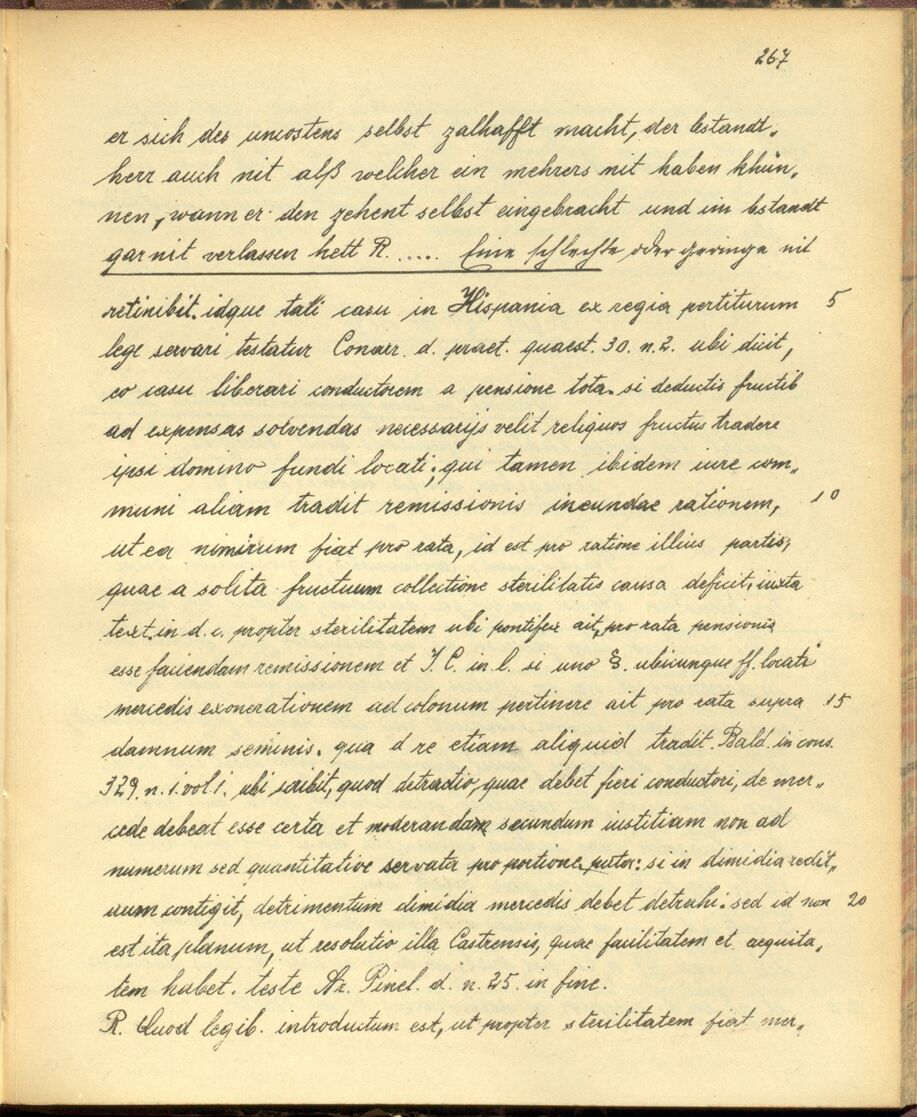 267
er sich des uncostens selbst zalhafft macht, der bstandt„
herr auch nit alß welcher ein mehrers nit haben khün„
nen, wann er den zehent selbst eingebracht und im bstandt
gar nit verlassen hett R. ..... Eine schlechte oder geringe nit
retinibit. idque tali casu in Hispania ex regia pertiturum 5
lege servari testatur Conarr. d. praet. quaest. 30. n. 2. ubi dicit,
eo casu liberari conductorem a pensione tota. si deductis fructib
ad expensas solvendas necessarijs velit reliquos fructus tradere
ipsi domino fundi locati; qui tamen ibidem iure com„
muni aliam tradit remissionis incundae rationem, 10
ut ea nimirum fiat pro rata, id est pro ratione illius partis,
quae a solita fructuum collectione sterilitatis causa deficit, iuxta
text. in d. c. propter sterilitatem ubi pontifex ait, pro rata pensionis
esse faciendam remissionem et J. C. in l. si uno §. ubicunque ff. locati
mercedis exonerationem ad colonum pertinere ait pro rata supra 15
damnum seminis. qua d re etiam aliquid tradit. Bald. in cons.
329. n. 1. vol 1. ubi scibit, quod detractio, quae debet fieri conductori, de mer„
cede debeat esse certa et moderandam secundum iustitiam non ad
numerum sed quantitative servata proportione puta: si in dimidia redit„
uum contigit, detrimentum dimidia mercedis debet detrahi. sed id non 20
est ita planum, ut resolutio illa Castrensis, quae facilitatem et aequita„
tem habet. teste Ar. Pinel. d. n. 25. in fine.
R. Quod legib. introductum est, ut propter sterilitatem fiat mer„